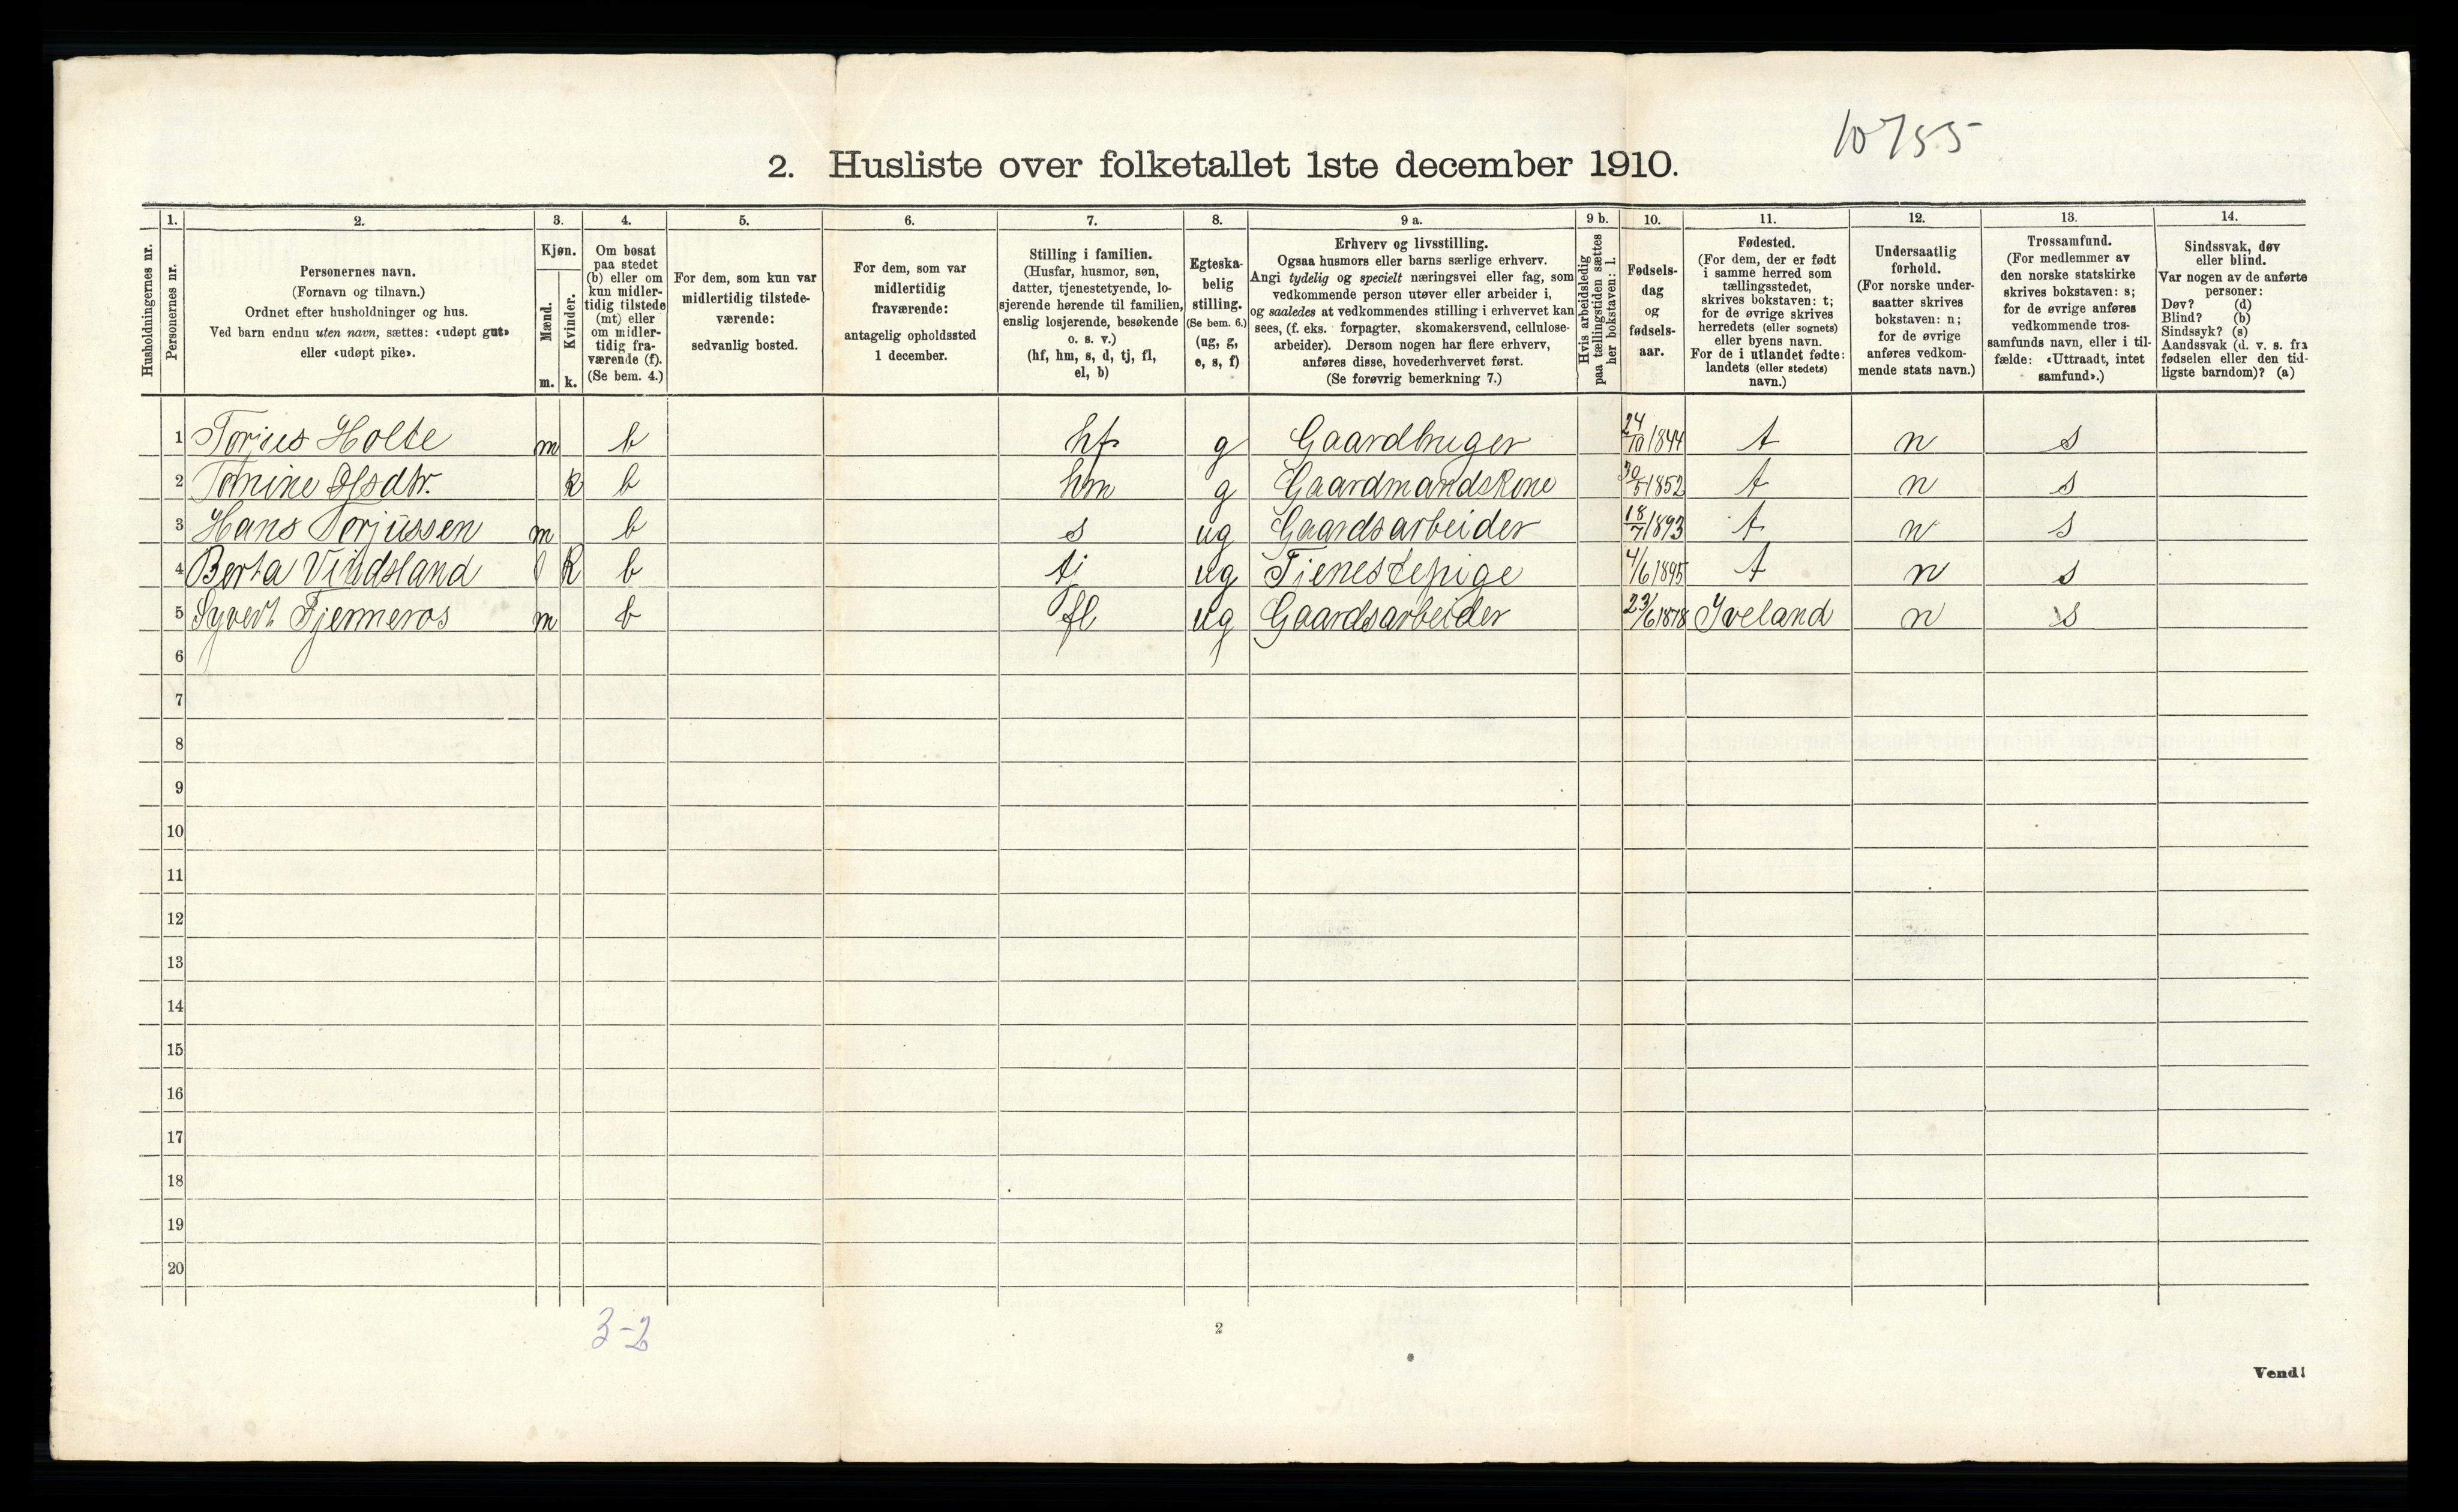 10755
2. Husliste over folketallet 1ste december 1910.
1. 2. 3. 4. 5. 6. 7. 8. 9 a. 9 b. 10. 11. 12. 13. 14.
Husholdningernes nr.
Personernes nr.
Personernes navn.
(Fornavn og tilnavn.)
Ordnet efter husholdninger og hus.
Ved barn endnu uten navn, sættes: «udøpt gut»
eller «udøpt pike».
Kjøn.
Mænd.
Kvinder.
m. k.
Om bosat
paa stedet
(b) eller om
kun midler-
tidig tilstede
(mt) eller
om midler-
tidig fra-
værende (f).
(Se bem. 4.)
For dem, som kun var
midlertidig tilstede-
værende:
sedvanlig bosted.
For dem, som var
midlertidig
fraværende:
antagelig opholdssted
1 december.
Stilling i familien.
(Husfar, husmor, søn,
datter, tjenestetyende, lo-
sjerende hørende til familien,
enslig losjerende, besøkende
o. s. v.)
(hf, hm, s, d, tj, fl,
el, b)
Egteska-
belig
stilling.
(Se bem. 6.)
(ug, g,
e, s, f)
Erhverv og livsstilling.
Ogsaa husmors eller barns særlige erhverv.
Angi tydelig og specielt næringsvei eller fag, som
vedkommende person utøver eller arbeider i,
og saaledes at vedkommendes stilling i erhvervet kan
sees, (f. eks. forpagter, skomakersvend, cellulose-
arbeider). Dersom nogen har flere erhverv,
anføres disse, hovederhvervet først.
(Se forøvrig bemerkning 7.)
Hvis arbeidsledig
paa tællingstiden sættes
her bokstaven: l.
Fødsels-
dag
og
fødsels-
aar.
Fødested.
(For dem, der er født
i samme herred som
tællingsstedet,
skrives bokstaven: t;
for de øvrige skrives
herredets (eller sognets)
eller byens navn.
For de i utlandet fødte:
landets (eller stedets)
navn.)
Undersaatlig
forhold.
(For norske under-
saatter skrives
bokstaven: n;
for de øvrige
anføres vedkom-
mende stats navn.)
Trossamfund.
(For medlemmer av
den norske statskirke
skrives bokstaven: s;
for de øvrige anføres
vedkommende tros-
samfunds navn, eller i til-
fælde: «Uttraadt, intet
samfund».)
Sindssvak, døv
eller blind.
Var nogen av de anførte
personer:
Døv? (d)
Blind? (b)
Sindssyk? (s)
Aandssvak (d. v. s. fra
fødselen eller den tid-
ligste barndom)? (a)
1 Torjus Holte m b hf g Gaardbruger 24/10 1844 t n s
2 Tomine Olsdtr. k b hm g Gaardmandskone 30/5 1852 t n s
3 Hans Torjussen m b s ug Gaardsarbeider 18/7 1893 t n s
4 Berta Vindsland k b tj ug Tjenestepige 4/6 1895 t n s
5 Syvert Fjermeros m b fl ug Gaardsarbeider 23/6 1878 Iveland n s
6
7
8
9
10
11
12
13
14
15
16
17
18
19
20
3-2
2
Vend!